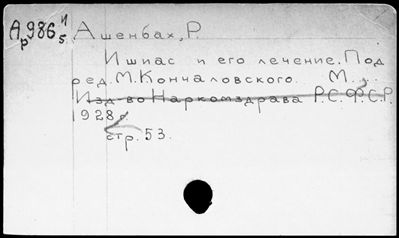 Ар986 и/5
Ашенбах, Р.
Ишиас и его лечение. Под
ред. М. Кончаловского. М.,
Изд-во Наркомздрава Р.С.Ф.С.Р.
1928 г.
стр. 53.